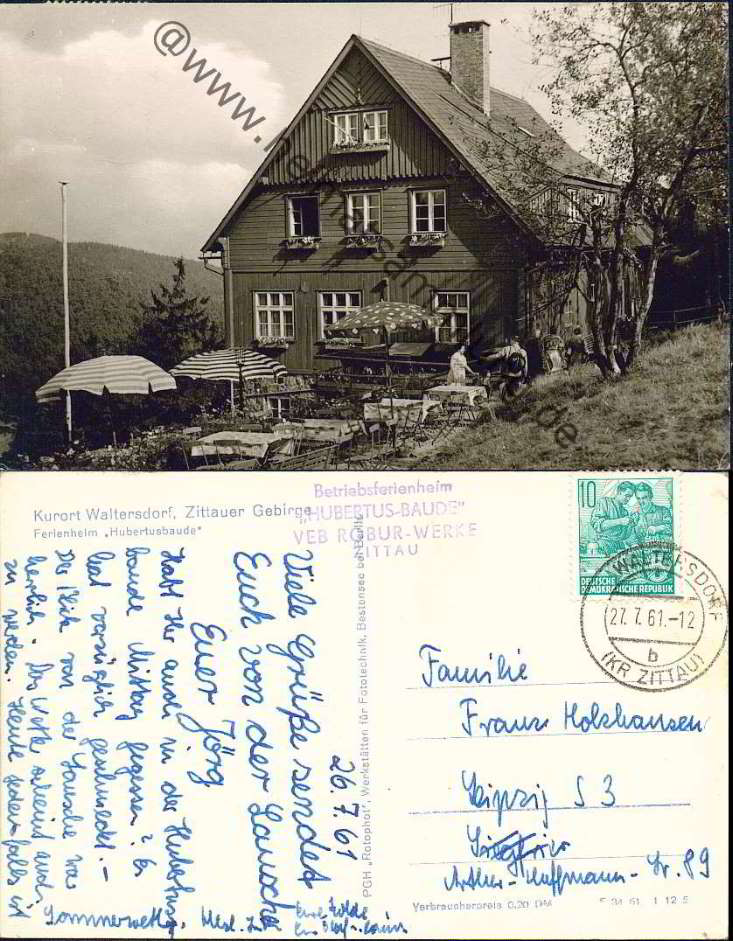 Kurort Waltersdorf, Zittauer Gebirge
Ferienheim „Hubertusbaude"
Betriebsferienheim
„HUBERTUS-BAUDE"
VEB ROBUR-WERKE
ZITTAU
10
DEUTSCHE
DEMOKRATISCHE REPUBLIK
WALTERSDORF
27.7.61.-12
b
(KR ZITTAU)
26.7.61
Viele Grüße sendet
Euch von der Lausche
Euer Jörg
Habt Ihr auch in der Hubertus-
baude Mittag gegessen? Es
hat vorzüglich geschmeckt. –
Der Blick von der Lausche war
herrlich. Das Wetter scheint auch
zu werden. Heute jedenfalls ist
Sommerwetter.
PGH „Rotophot", Werkstätten für Fototechnik, Bestensee bei Berlin
Familie
Franz Holzhausen
Leipzig S 3
Arthur-Hoffmann-Str. 89
Verbraucherpreis 0,20 DM